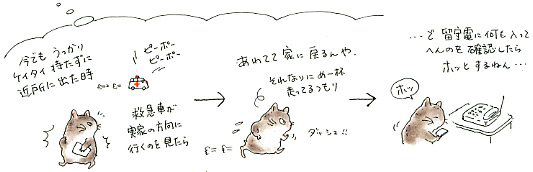 今でも うっかり
ケイタイ 持たずに
近所に出た時
ピーポー
ピーポー
救急車が
実家の方向に
行くのを見たら
あわてて 家に戻るんや。
それなりにめ一杯
走ってるつもり
ダッシュ!!
…ど 留守電に何も入って
へんのを確認したら
ホッと するねん…
ホッ